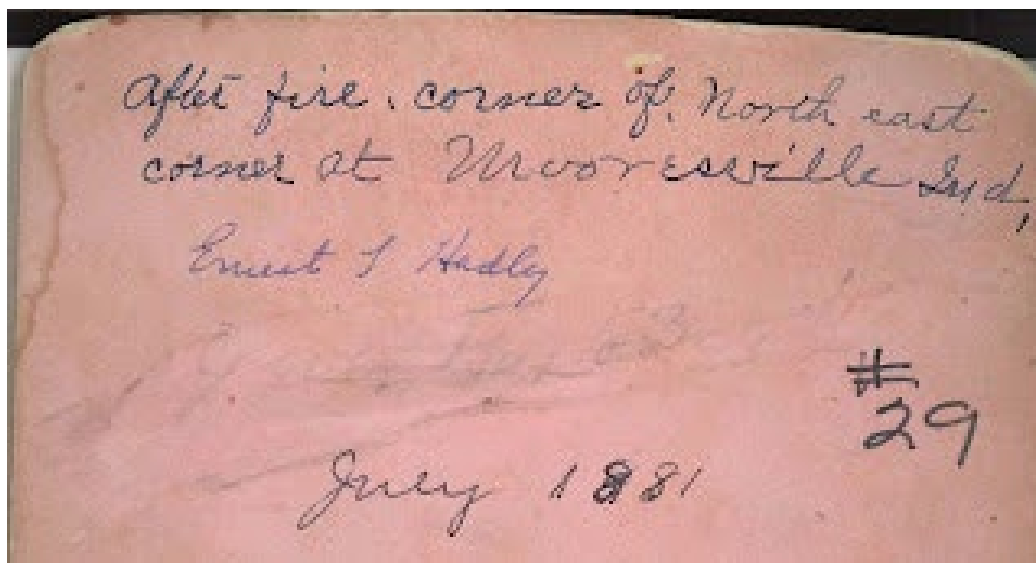 After fire. corner of. North east
corner at Mooresville Ind,
Ernest T Hadley
#
29
July 1881